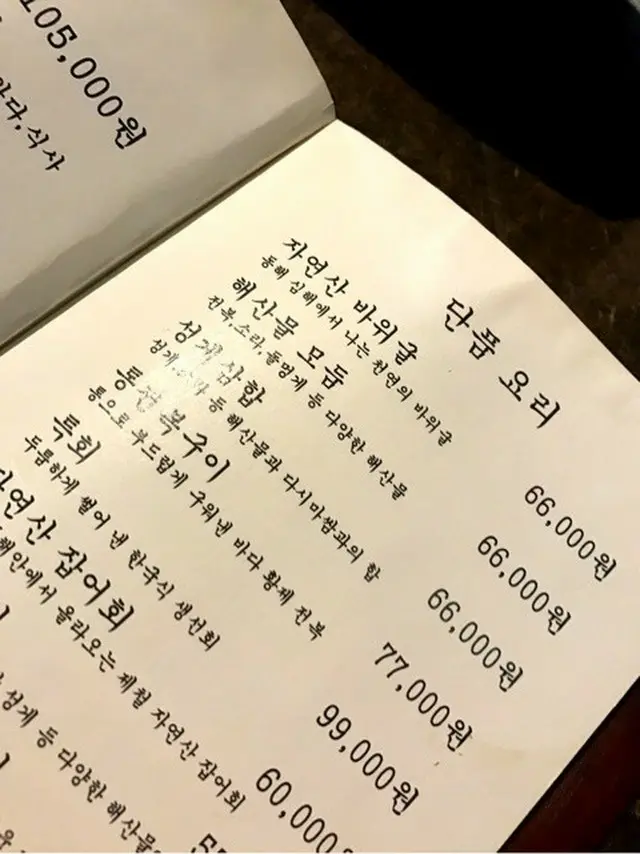 105,000원
식사
단품 요리
자연산 바위굴 66,000원
동해 심해에서 나는 천연의 바위굴
해산물 모듬 66,000원
전복,소라,돌멍게 등 다양한 해산물
성게 삼합 66,000원
성게, 등 해산물과 다시마쌈과의 합
통전복구이 77,000원
통으로 부드럽게 구워낸 바다 황제 전복
특회 99,000원
두툼하게 썰어 낸 한국식 생선회
자연산 잡어회 60,000
올라오는 제철 자연산 잡어회
성게 등 다양한 해산물